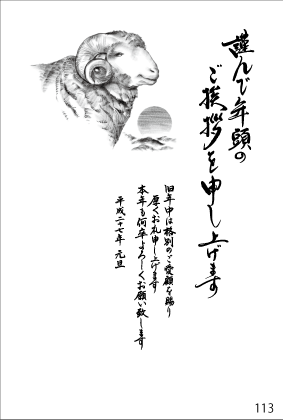 謹んで年頭の
ご挨拶を申し上げます
旧年中は格別のご愛顧を賜り
厚くお礼申し上げます
本年も何卒よろしくお願い致します
平成二十七年 元旦
113